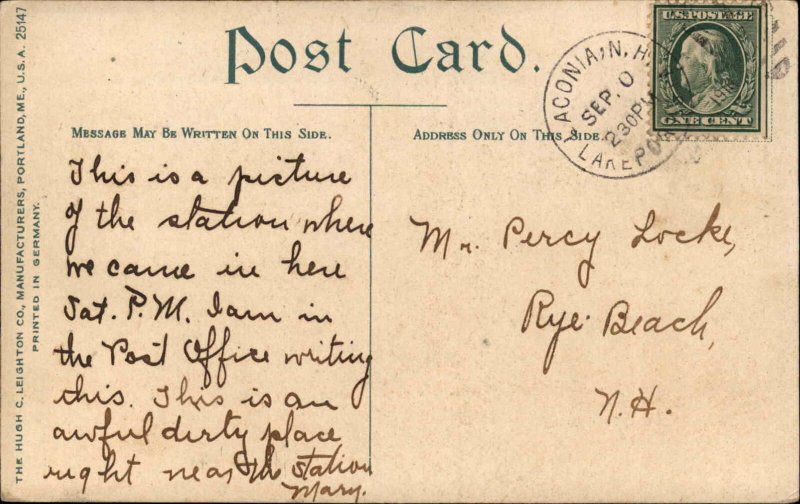 THE HUGH C. LEIGHTON CO., MANUFACTURERS, PORTLAND, ME., U.S.A. 25147
PRINTED IN GERMANY.
Post Card.
MESSAGE MAY BE WRITTEN ON THIS SIDE.
This is a picture
of the station where
we came in here
Sat. P.M. I am in
the Post Office writing
this. This is an
awful dirty place
right near the station
Mary.
ADDRESS ONLY ON THIS SIDE.
LACONIA, N.H.
SEP. 0
230PM
LAKEPORT
U.S. POSTAGE
ONE CENT
Mr. Percy Locke,
Rye Beach,
N.H.